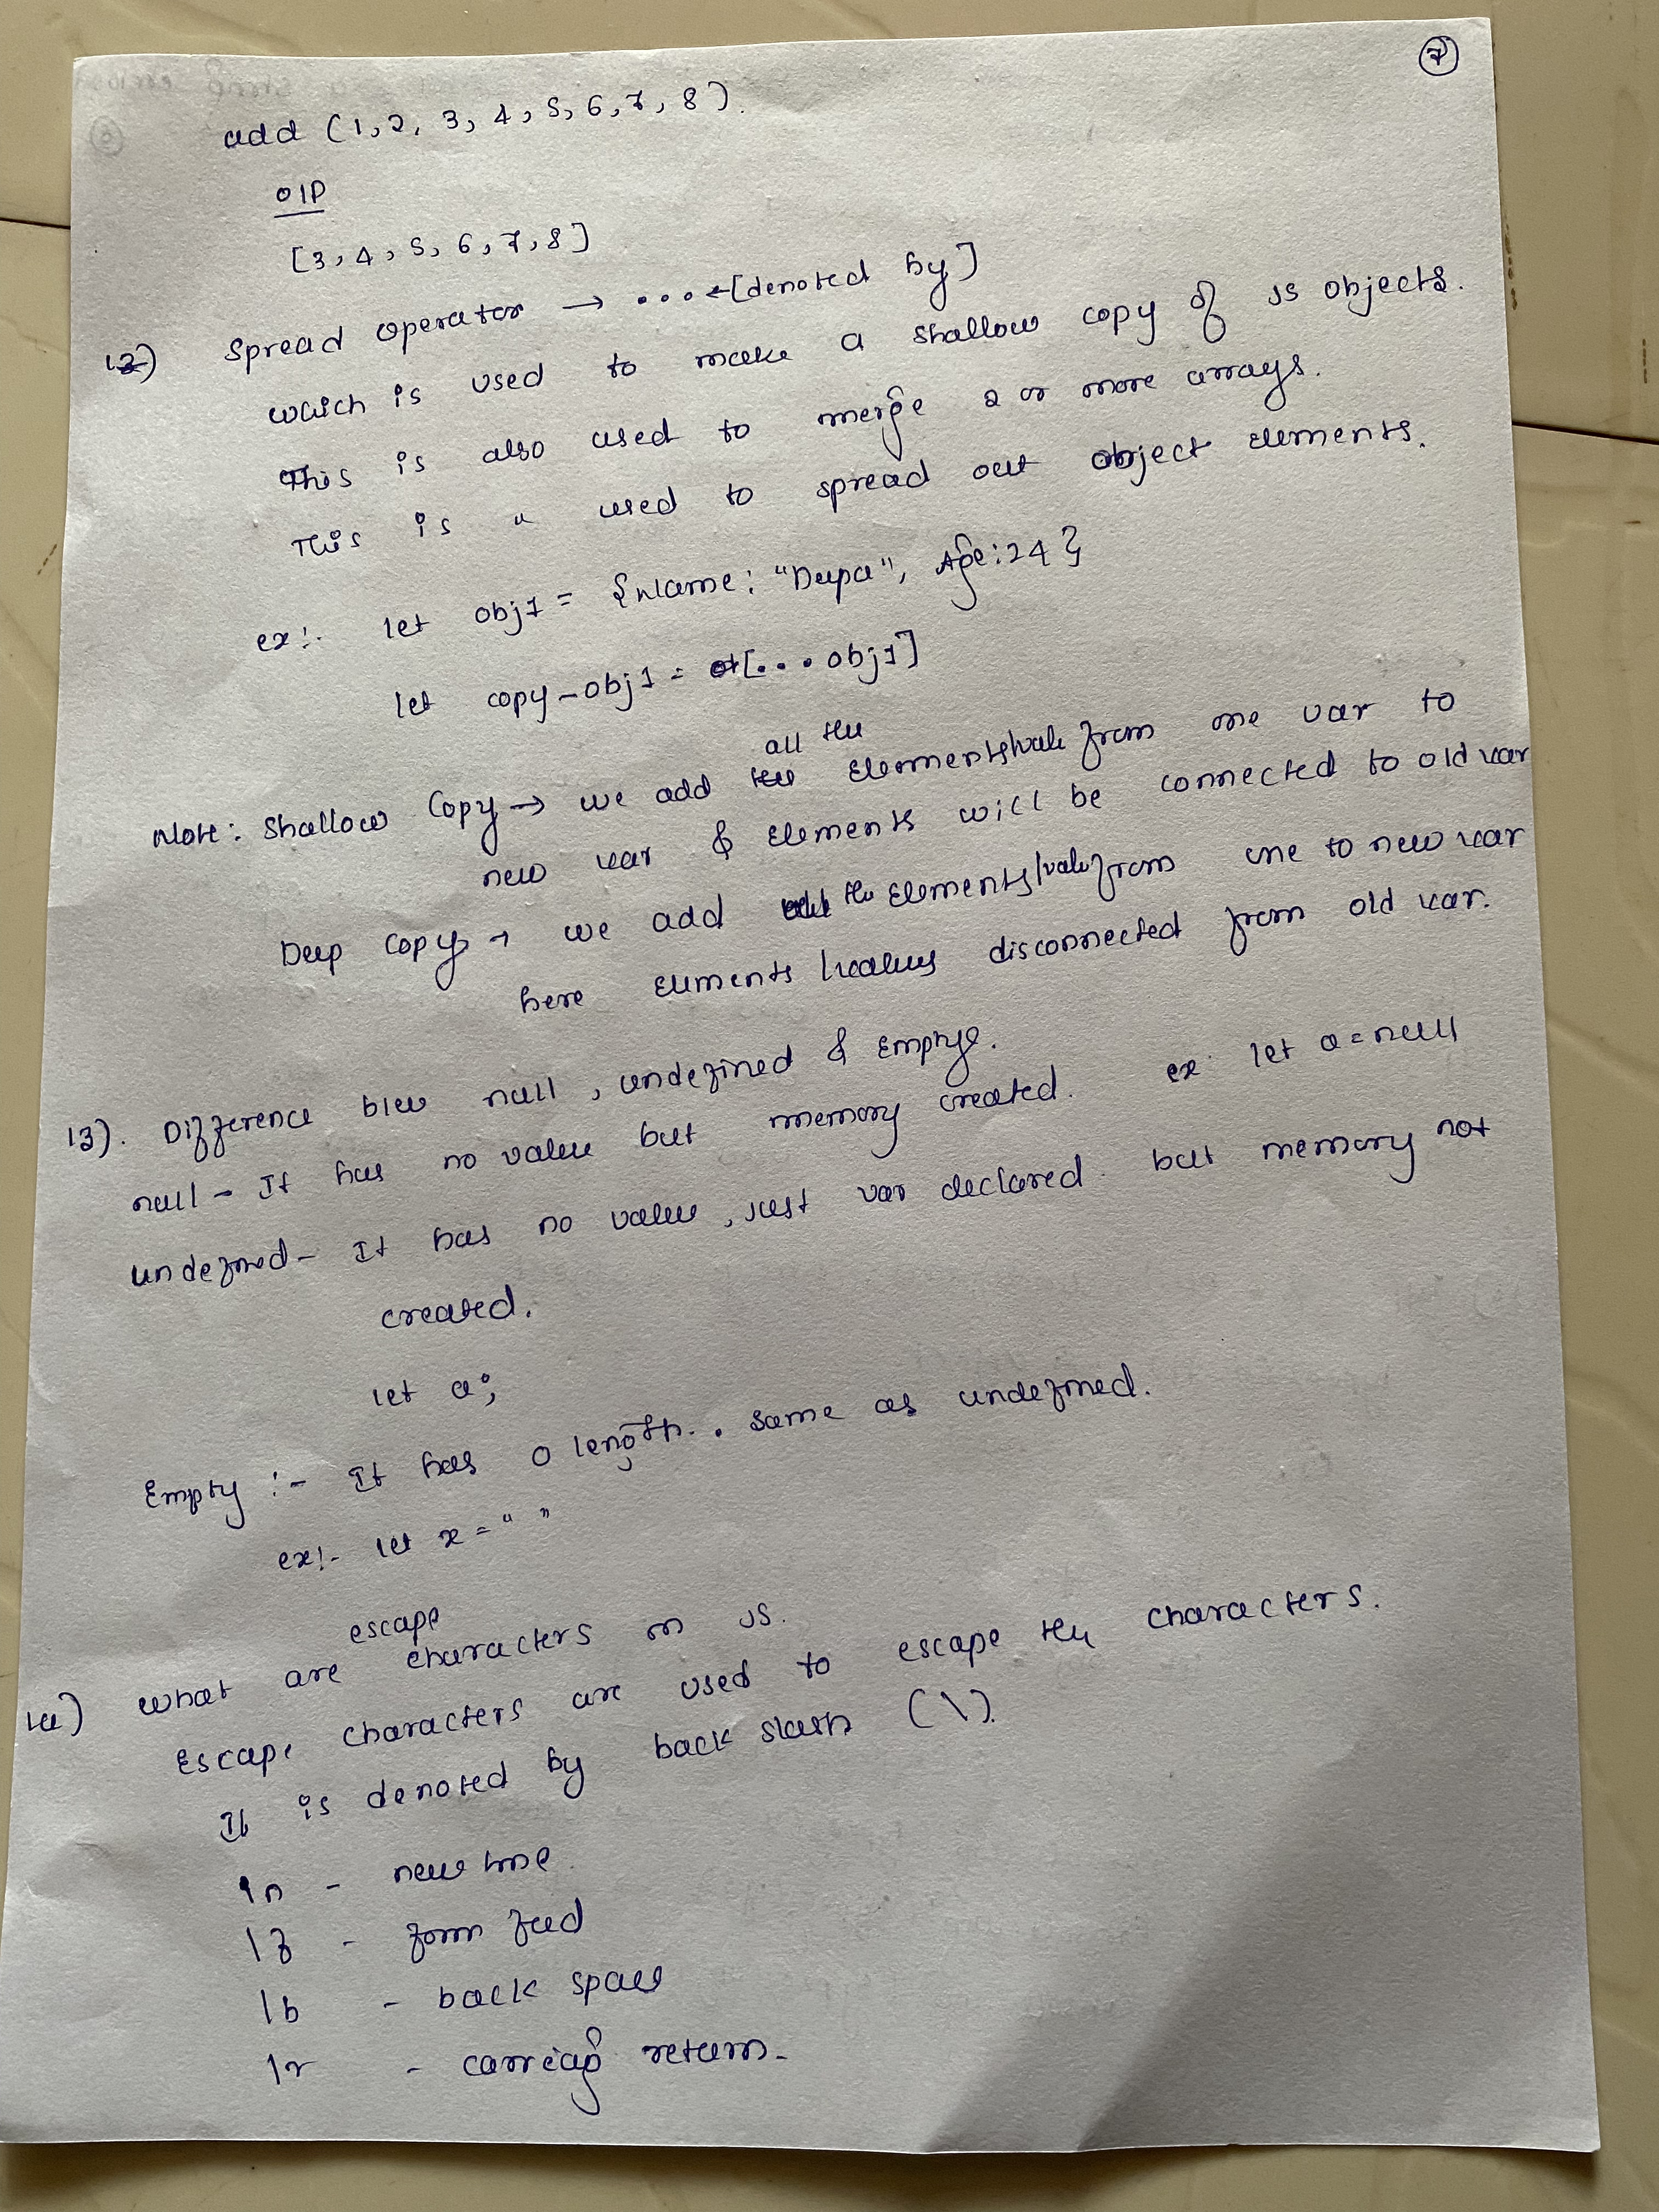 7
add (1, 2, 3, 4, 5, 6, 7, 8).
O/P
[3, 4, 5, 6, 7, 8]
12) Spread operator → ... ←[denoted by]
which is used to make a shallow copy of JS objects.
This is also used to merge 2 or more arrays.
This is " used to spread out object elements.
ex:- let obj1 = {Name: "Deepa", Age:24}
let copy-obj1 = [...obj1]
all the
Note: Shallow Copy → we add elements/value from one var to
new var & elements will be connected to old var
Deep Copy → we add the elements/value from one to new var
here elements/values disconnected from old var.
13). Difference b/w null, undefined & Empty.
null - It has no value but memory created. ex let a = null
undefined - It has no value, just var declared. but memory not
created.
let a;
Empty :- It has 0 length. . same as undefined.
ex:- let x = " "
escape
14) What are characters in JS.
Escape characters are used to escape the characters.
It is denoted by back slash (\).
\n - new line
\f - form feed
\b - back space
\r - carriage return.